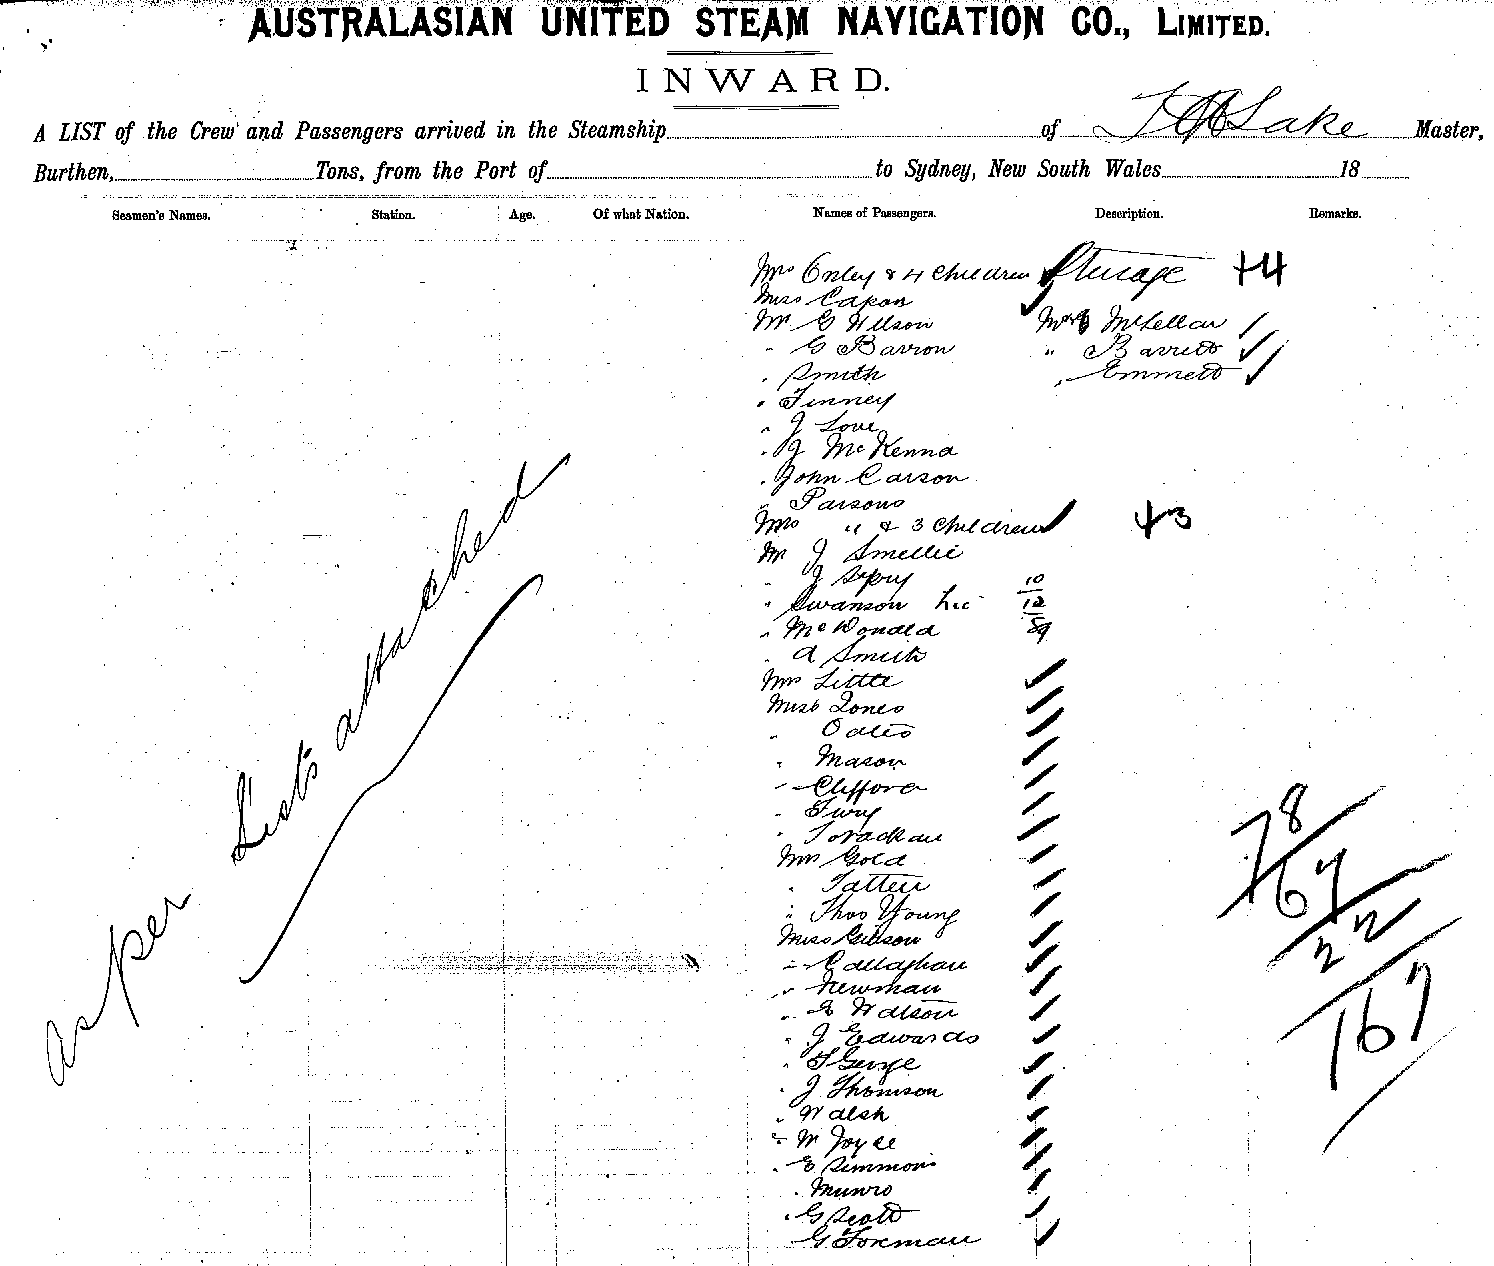 AUSTRALASIAN UNITED STEAM NAVIGATION CO., LIMITED.
INWARD.
A LIST of the Crew and Passengers arrived in the Steamship of Lake Master,
Burthen, Tons, from the Port of to Sydney, New South Wales 18
Seamen's Names. Station. Age. Of what Nation. Names of Passengers. Description. Remarks.
Mrs Onley & 4 Children Steerage +4
Miss Capon
Mr G Wilson McLellan
" G Barron " Barrett
" Smith " Emmett
" Finney
" J Love
" J McKenna
" John Carson
" Parsons
Mrs " & 3 Children +3
Mr J Smellie
" J
" Swanson 10
" McDonald 12
" A Smith 89
Mrs Little
Miss Jones
" Oates
" Mason
" Clifford
" Fury
"
Mrs Gold
"
" Thos Young
Miss Gibson
" Callaghan
" Newman
" G Watson
" J Edwards
" George
" J Thomson
" Walsh
" W Joyce
" E Simmons
" Munro
" G Scott
G Foreman
as per Lists attached
78
67
22
167